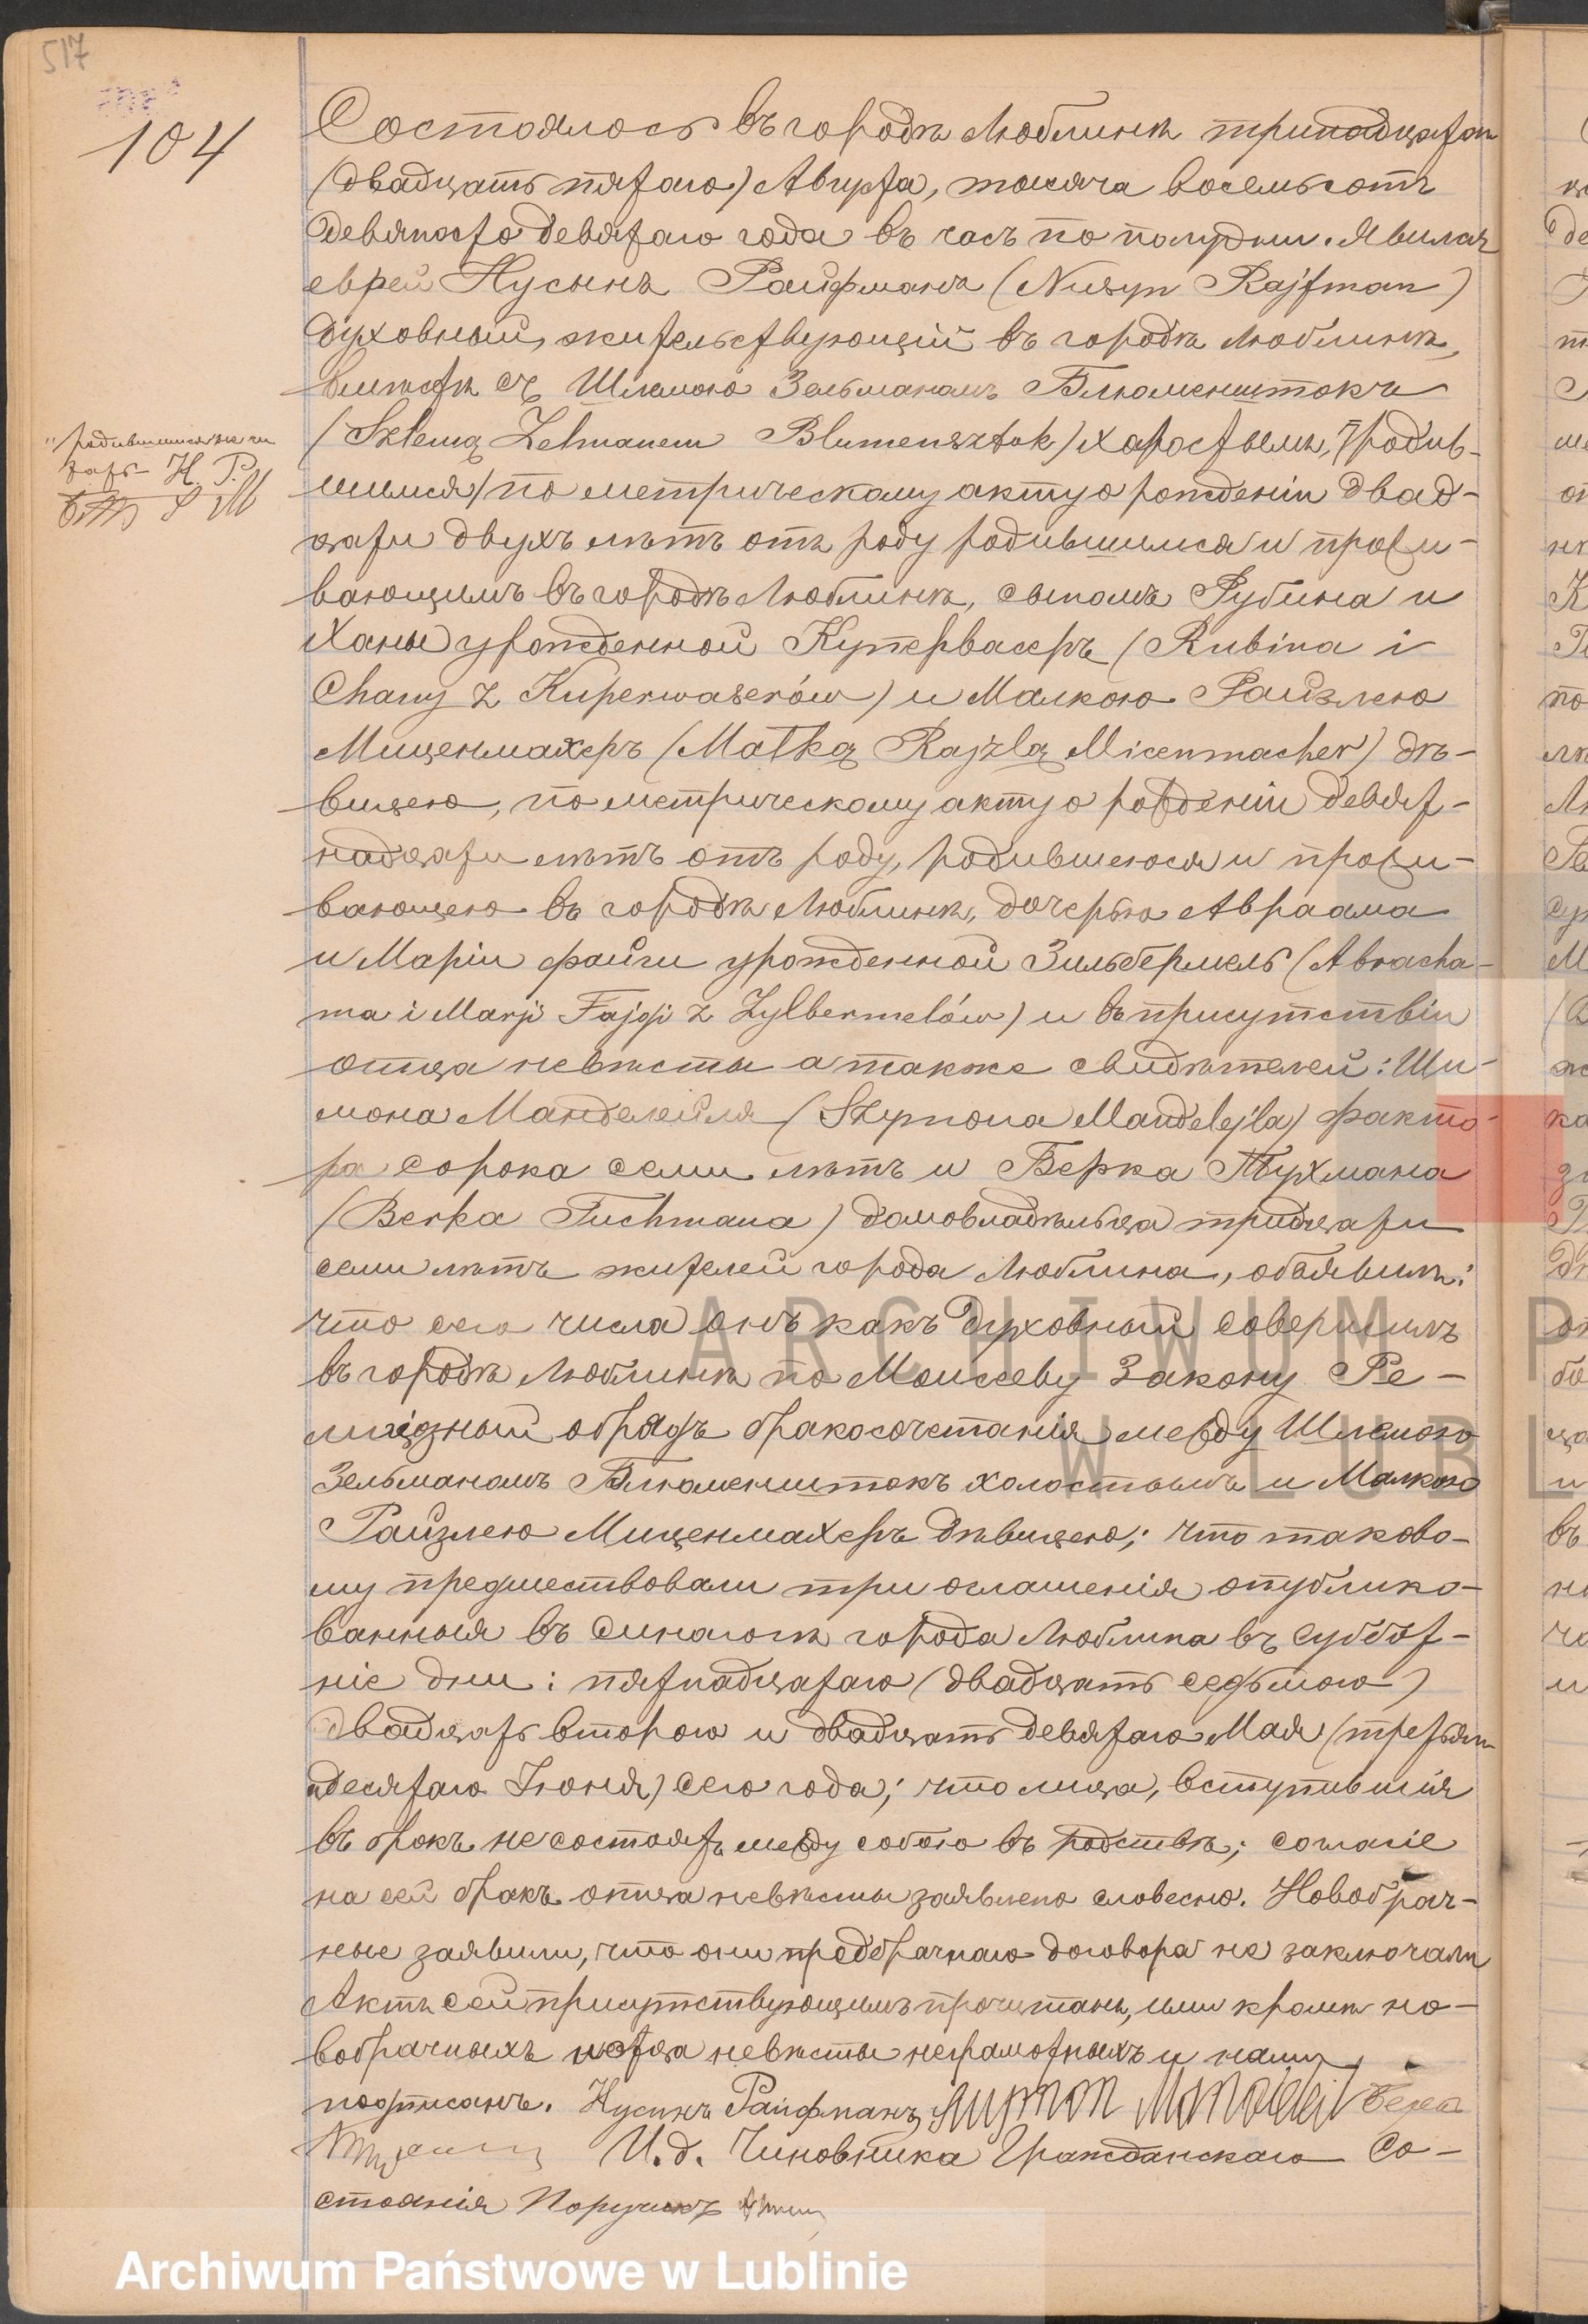 517
104
Состоялось въ городѣ Люблинѣ тринадцатаго
(двадцать пятаго) Августа, тысяча восемьсотъ
девяносто девятаго года въ часъ по полудни. Явился
еврей Нусынъ Райфманъ (Nusyn Rajfman)
духовный, жительствующій въ городѣ Люблинѣ,
вмѣстѣ съ Шлемою Зельманомъ Блюменштокъ
(Szlemą Zelmanem Blumensztok) холостымъ, (родив-
шимся) по метрическому акту о рожденіи двад-
цати двухъ лѣтъ отъ роду родившимся и прожи-
вающимъ въ городѣ Люблинѣ, сыномъ Рубина и
Ханы урожденной Купервасеръ (Rubina i
Chany z Kuperwaserów) и Малкою Райзлею
Миценмахеръ (Małką Rajzlą Micenmacher) дѣ-
вицею, по метрическому акту о рожденіи девят-
надцати лѣтъ отъ роду, родившеюся и прожи-
вающею въ городѣ Люблинѣ, дочерью Авраама
и Маріи Файги урожденной Зильбермель (Abracha-
ma i Marji Fajgi z Zylbermelów) и въ присутствіи
отца невѣсты а также свидѣтелей: Ши-
мона Манделейля (Szymona Mandelejla) факто-
ра сорока семи лѣтъ и Берка Тухмана
(Berka Tuchmana) домовладѣльца тридцати
семи лѣтъ жителей города Люблина, объявилъ:
что сего числа онъ какъ духовный совершилъ
въ городѣ Люблинѣ по Моисееву Закону Ре-
лигіозный обрядъ бракосочетанія между Шлемою
Зельманомъ Блюменштокъ холостымъ и Малкою
Райзлею Миценмахеръ дѣвицею; что таково-
му предшествовали три оглашенія опублико-
ванныя въ Синагогѣ города Люблина въ суббот-
ніе дни: пятнадцатаго (двадцать седьмого)
двадцать второго и двадцать девятаго Мая (третьяго
десятаго Іюня) сего года; что лица, вступившія
въ бракъ не состоятъ между собою въ родствѣ; согласіе
на сей бракъ отца невѣсты заявлено словесно. Новобрач-
ные заявили, что они предбрачнаго договора не заключали
Актъ сей присутствующимъ прочитанъ, ими кромѣ но-
вобрачныхъ и отца невѣсты неграмотныхъ и нами
подписанъ. Нусинъ Райфманъ Берко
И. д. Чиновника Гражданскаго Со-
стоянія Поручикъ
"родившимися
Н. Р.
ARCHIWUM P
W LUBL
Archiwum Państwowe w Lublinie